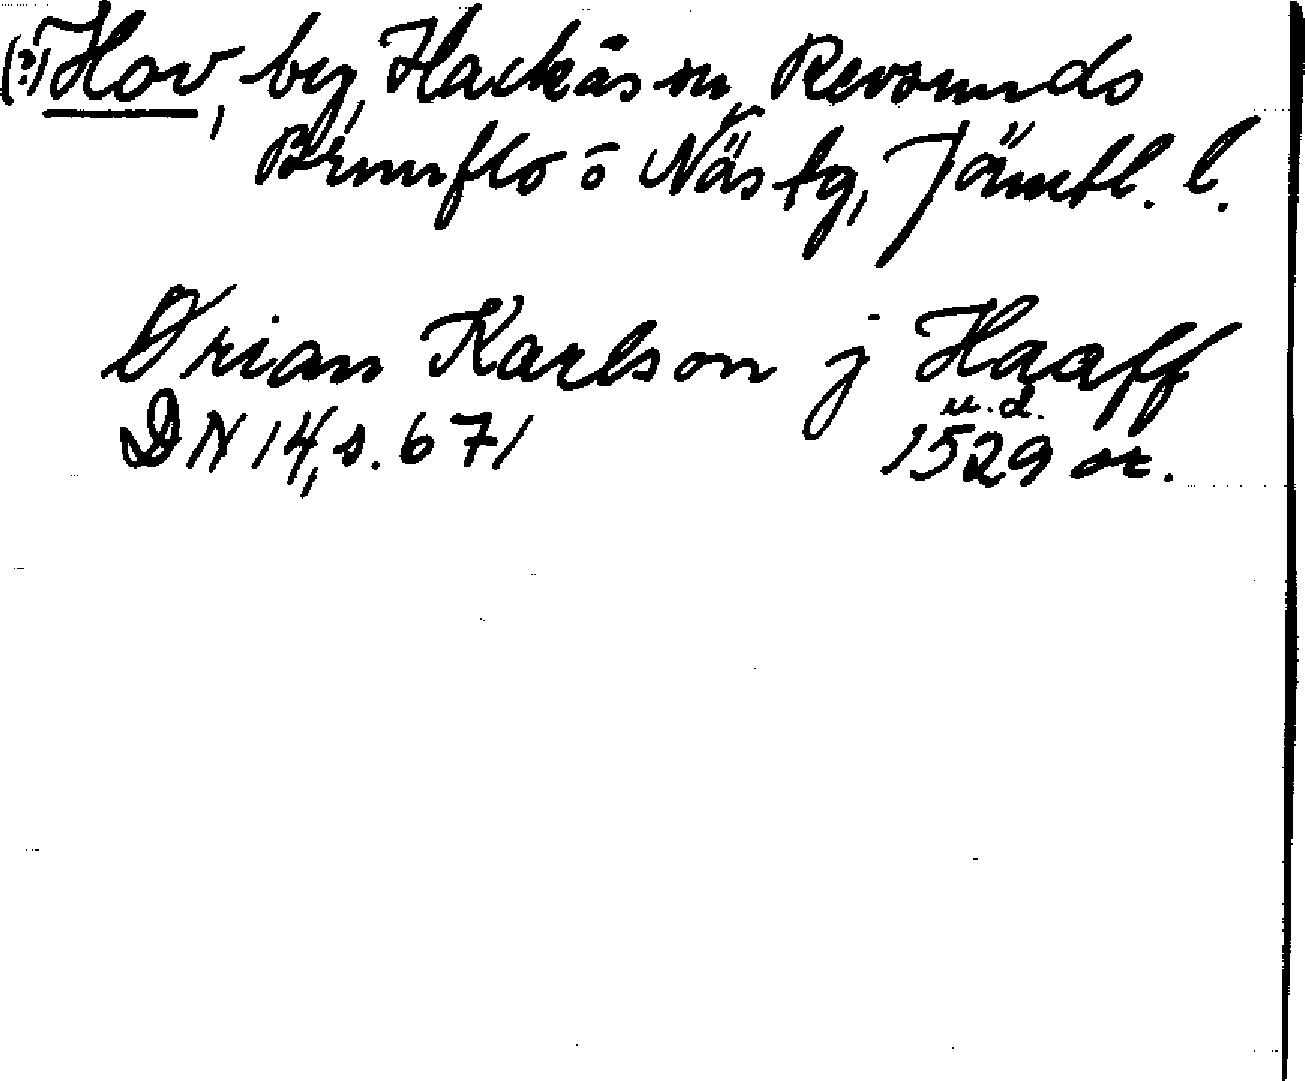 (?) Hov, by, Hackås sn, Revsunds
Brunflo o Näs tg, Jämtl. l.
Ørian Karlson j Haaff
u. d.
DN 14, s. 671 1529 or.